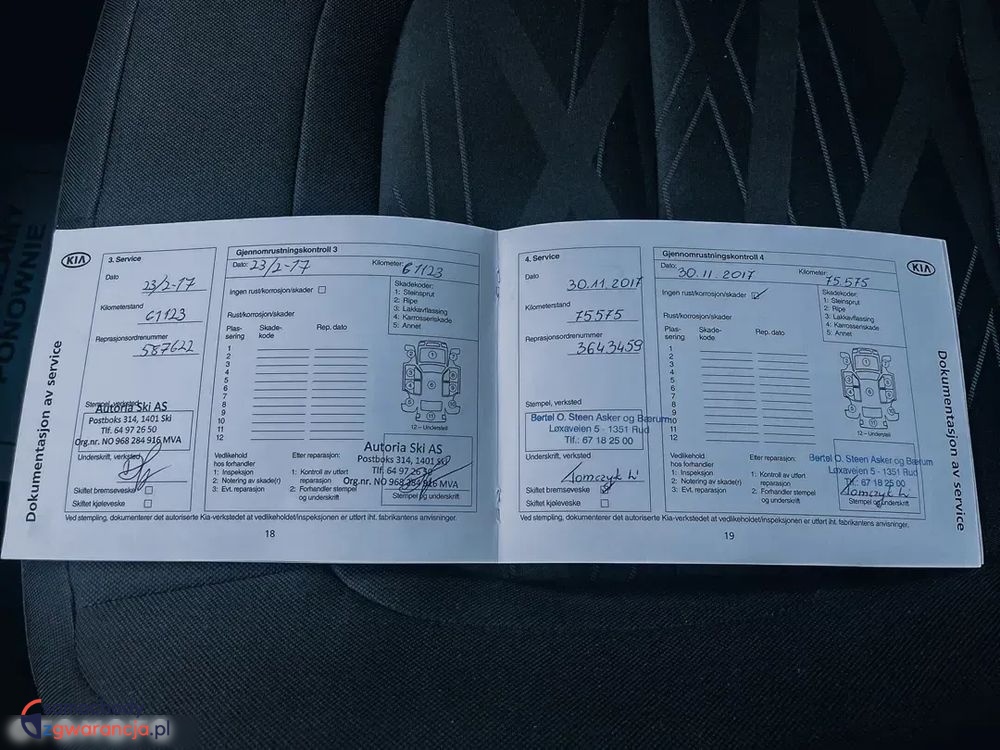 PONOWNIE
KIA
Dokumentasjon av service
3. Service
Dato
23/2-17
Kilometerstand
61123
Reprasjonsordrenummer
587622
Stempel, verksted
Autoria Ski AS
Postboks 314, 1401 Ski
Tlf. 64 97 26 50
Org.nr. NO 968 284 916 MVA
Underskrift, verksted
Skiftet bremsevæske
Skiftet kjølevæske
Gjennomrustningskontroll 3
Dato: 23/2-17 Kilometer: 61123
Ingen rust/korrosjon/skader
Skadekoder:
1: Steinsprut
2: Ripe
3: Lakkavflassing
4: Karrosseriskade
5: Annet
Rust/korrosjon/skader
Plas-
sering
Skade-
kode
Rep. dato
1
2
3
4
5
6
7
8
9
10
11
12
12 – Understell
Vedlikehold
hos forhandler
1: Inspeksjon
2: Notering av skade(r)
3: Evt. reparasjon
Etter reparasjon:
1: Kontroll av utført
reparasjon
2: Forhandler stempel
og underskrift
Autoria Ski AS
Postboks 314, 1401 Ski
Tlf. 64 97 26 50
Org.nr. NO 968 284 916 MVA
Stempel og underskrift
Ved stempling, dokumenterer det autoriserte Kia-verkstedet at vedlikeholdet/inspeksjonen er utført iht. fabrikantens anvisninger.
18
4. Service
Dato
30.11.2017
Kilometerstand
75575
Reprasjonsordrenummer
3643459
Stempel, verksted
Bertel O. Steen Asker og Bærum
Løxaveien 5 - 1351 Rud
Tlf.: 67 18 25 00
Underskrift, verksted
Tomczyk
Skiftet bremsevæske
Skiftet kjølevæske
Gjennomrustningskontroll 4
Dato: 30.11.2017 Kilometer: 75.575
Ingen rust/korrosjon/skader
Skadekoder:
1: Steinsprut
2: Ripe
3: Lakkavflassing
4: Karrosseriskade
5: Annet
Rust/korrosjon/skader
Plas-
sering
Skade-
kode
Rep. dato
1
2
3
4
5
6
7
8
9
10
11
12
12 – Understell
Vedlikehold
hos forhandler
1: Inspeksjon
2: Notering av skade(r)
3: Evt. reparasjon
Etter reparasjon:
1: Kontroll av utført
reparasjon
2: Forhandler stempel
og underskrift
Bertel O. Steen Asker og Bærum
Løxaveien 5 - 1351 Rud
Tlf.: 67 18 25 00
Tomczyk
Stempel og underskrift
Ved stempling, dokumenterer det autoriserte Kia-verkstedet at vedlikeholdet/inspeksjonen er utført iht. fabrikantens anvisninger.
19
KIA
Dokumentasjon av service
zgwarancja.pl